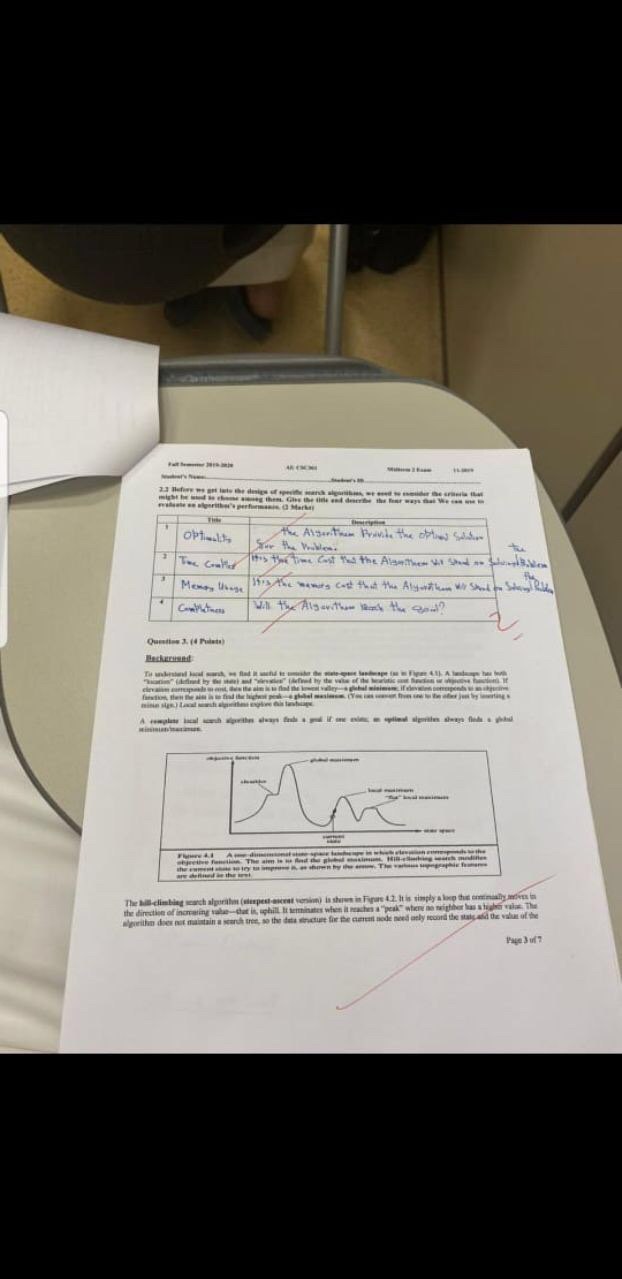 Fall Semester 2019-2020 AI: CSC361 Midterm 2 Exam 11-2019
Student's Name: Student's ID
2.2 Before we get into the design of specific search algorithms, we need to consider the criteria that
might be used to choose among them. Give the title and describe the four ways that We can use to
evaluate an algorithm's performance. (2 Marks)
Title Description
1 Optimality the Algorithem Provide the optimal Solution
for the Problem.
2 Time Complex It is the Time Cost that the Algorithem Will Spend on Solving the Problem
3 Memory Usage It is the memory Cost that the Algorithem Will Spend on Solving the Problem
4 Completness Will the Algorithem Reach the goal?
2
Question 3. (4 Points)
Background:
To understand local search, we find it useful to consider the state-space landscape (as in Figure 4.1). A landscape has both
"location" (defined by the state) and "elevation" (defined by the value of the heuristic cost function or objective function). If
elevation corresponds to cost, then the aim is to find the lowest valley—a global minimum; if elevation corresponds to an objective
function, then the aim is to find the highest peak—a global maximum. (You can convert from one to the other just by inserting a
minus sign.) Local search algorithms explore this landscape.
A complete local search algorithm always finds a goal if one exists; an optimal algorithm always finds a global
minimum/maximum.
objective function
global maximum
shoulder
local maximum
"flat" local maximum
state space
current
state
Figure 4.1 A one-dimensional state-space landscape in which elevation corresponds to the
objective function. The aim is to find the global maximum. Hill-climbing search modifies
the current state to try to improve it, as shown by the arrow. The various topographic features
are defined in the text.
The hill-climbing search algorithm (steepest-ascent version) is shown in Figure 4.2. It is simply a loop that continually moves in
the direction of increasing value—that is, uphill. It terminates when it reaches a "peak" where no neighbor has a higher value. The
algorithm does not maintain a search tree, so the data structure for the current node need only record the state and the value of the
Page 3 of 7